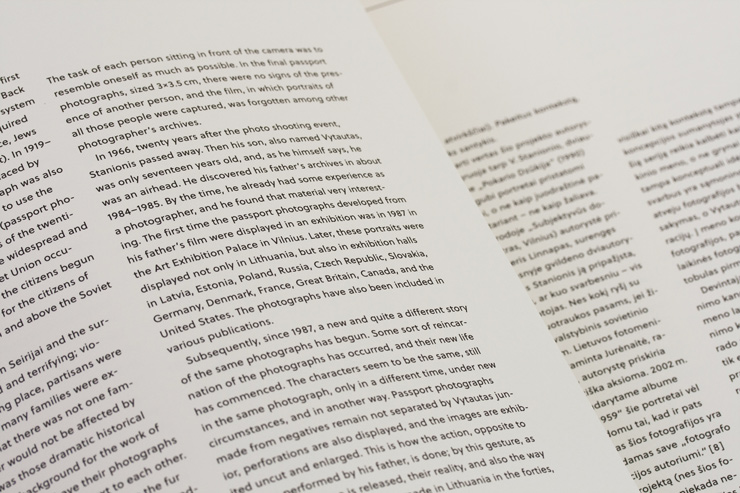 first
Back
system
quired
ce, Jews
t). In 1919–
aced by
aph was also
to use the
(passport pho-
s of the twenti-
e widespread and
et Union occu-
the citizens begun
for the citizens of
and above the Soviet
n Seirijai and the sur-
d and terrifying; vio-
ng place, partisans were
many families were ex-
at there was not one fam-
r would not be affected by
was those dramatic historical
background for the work of
ave their photographs
t to each other.
the fur
The task of each person sitting in front of the camera was to
resemble oneself as much as possible. In the final passport
photographs, sized 3×3.5 cm, there were no signs of the pres-
ence of another person, and the film, in which portraits of
all those people were captured, was forgotten among other
photographer's archives.
In 1966, twenty years after the photo shooting event,
Stanionis passed away. Then his son, also named Vytautas,
was only seventeen years old, and, as he himself says, he
was an airhead. He discovered his father's archives in about
1984–1985. By the time, he already had some experience as
a photographer, and he found that material very interest-
ing. The first time the passport photographs developed from
his father's film were displayed in an exhibition was in 1987 in
the Art Exhibition Palace in Vilnius. Later, these portraits were
displayed not only in Lithuania, but also in exhibition halls
in Latvia, Estonia, Poland, Russia, Czech Republic, Slovakia,
Germany, Denmark, France, Great Britain, Canada, and the
United States. The photographs have also been included in
various publications.
Subsequently, since 1987, a new and quite a different story
of the same photographs has begun. Some sort of reincar-
nation of the photographs has occurred, and their new life
has commenced. The characters seem to be the same, still
in the same photograph, only in a different time, under new
circumstances, and in another way. Passport photographs
made from negatives remain not separated by Vytautas jun-
ior, perforations are also displayed, and the images are exhib-
ited uncut and enlarged. This is how the action, opposite to
performed by his father, is done; by this gesture, as
is released, their reality, and also the way
made in Lithuania in the forties,
Pakeitus kontekstą,
s santykis.
erti vertas šio projekto autorys-
tarp V. Stanionis, dviau-
„Pokario Dzūkija“ (1990)
portretai pristatomi
o ne kaip juodraštinė pa-
– ne kaip žaliava.
„Subjektyvūs do-
Vilnius) autorystė pri-
eris Linnapas, surengęs
gyveno dviautory-
Stanionis ją pripažįsta,
ar kuo svarbesniu – vis
tojas. Nes kokį ryšį su
otraukos pasams, jei ži-
valstybinis sovietinio
n. Lietuvos fotomeni-
aminta Jurėnaitė, ra-
autorystę priskiria
iška aksioma. 2002 m.
darytame albume
959“ šie portretai vėl
lomu tai, kad ir pats
as šios fotografijos yra
damas save „fotografo
cijos autoriumi.“ [8]
rojektą (nes šios fo-
niekada ne-
kitą kontekstą tampa
koncepcijos sumanytojas
šią seriją reikia kalbėti kai
kino meno, o ne grynos
tampa konceptuali
svarbus yra
atveju fotografijos
sakymas, o Vytautas
racijų. Į meno
fotografijos, pa
laikinės fotogra
tobulas pirm
Devintaj
nimo kan
meno la
nimo
rado
tik e
pr